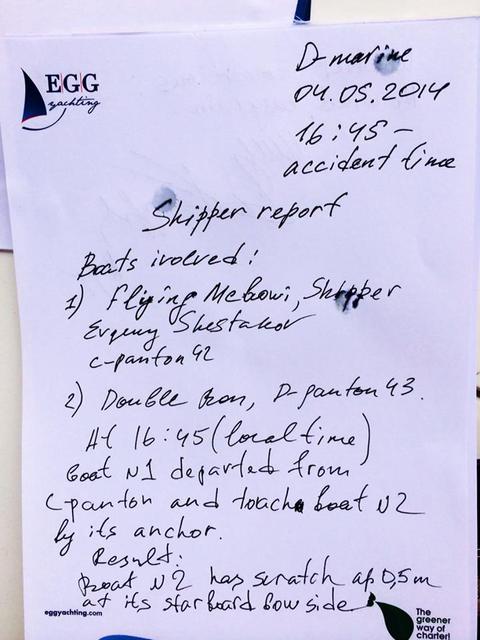 EGG
yachting
D-marine
04.05.2014
16:45 -
accident time
Skipper report
Boats ivolved:
1) Flying Mcbowi, Skipper
Evgeny Shestakov
c-panton 42
2) Double Bon, D-panton 43.
At 16:45 (local time)
boat N1 departed from
C-panton and toach boat N2
by its anchor.
Result:
Boat N2 has scratch ap 0,5m
at its starboard bow side
eggyachting.com
The
greener
way of
charter!